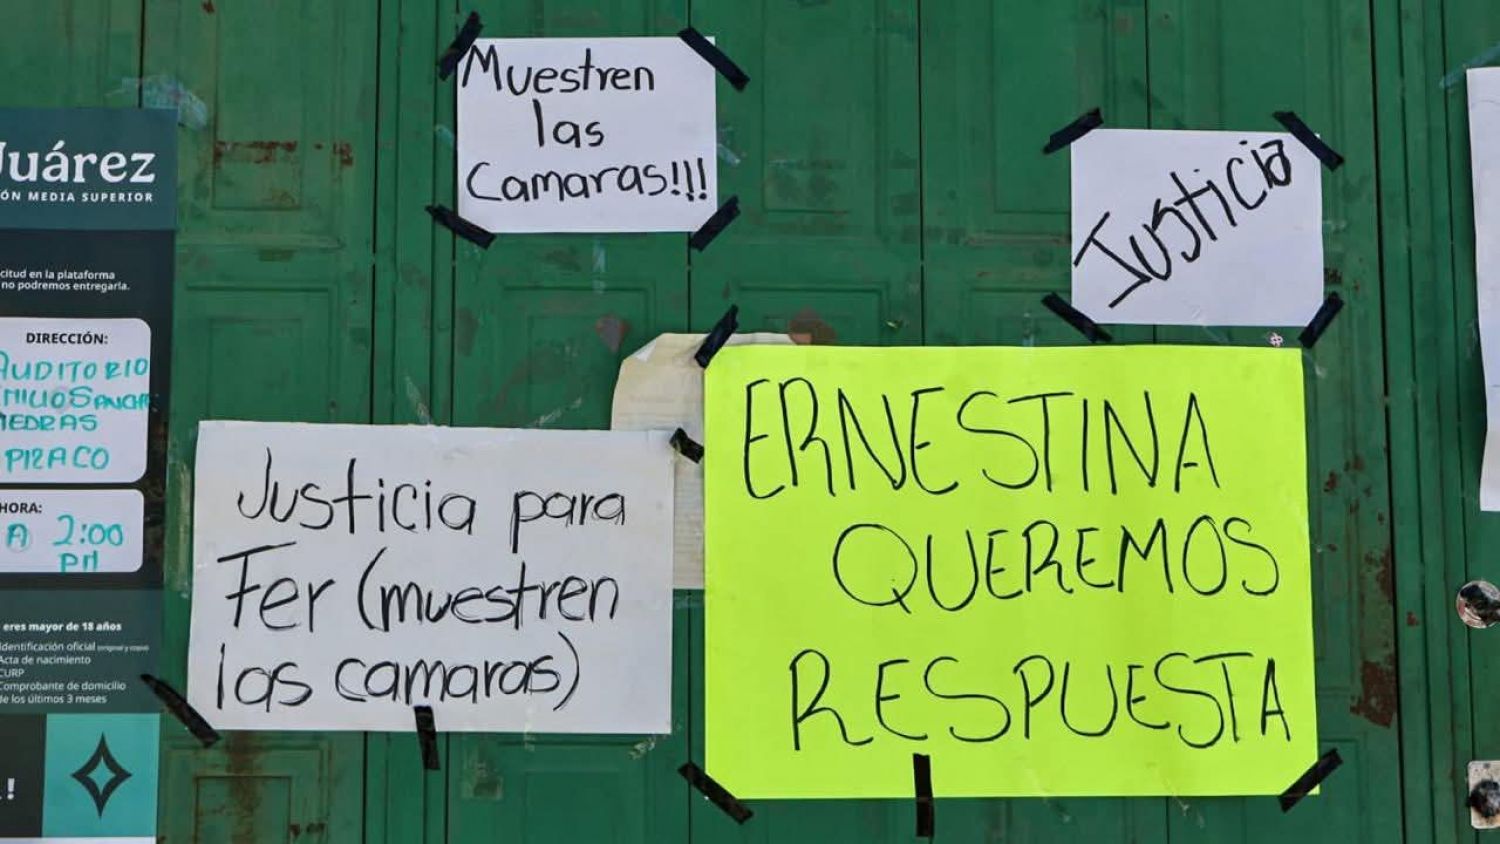 Juárez
MEDIA SUPERIOR
en la plataforma
no podremos entregarla.
DIRECCIÓN:
AUDITORIO
PIZACO
HORA:
A 2:00
PM
eres mayor de 18 años
Identificación oficial (original y copia)
Acta de nacimiento
CURP
Comprobante de domicilio
de los últimos 3 meses
!
Muestren
las
Camaras!!!
Justicia
Justicia para
Fer (muestren
las camaras)
ERNESTINA
QUEREMOS
RESPUESTA